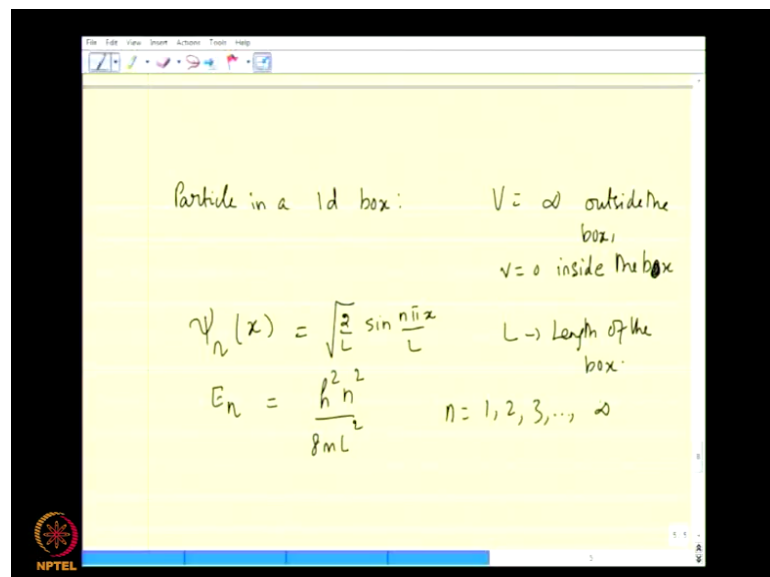 File Edit View Insert Actions Tools Help
Particle in a 1d box: V = ∞ outside the
box,
V = 0 inside the box
ψ_n(x) = √(2/L) sin nπx/L L → Length of the
box.
E_n = h²n²/8mL² n = 1, 2, 3, .., ∞
5
NPTEL